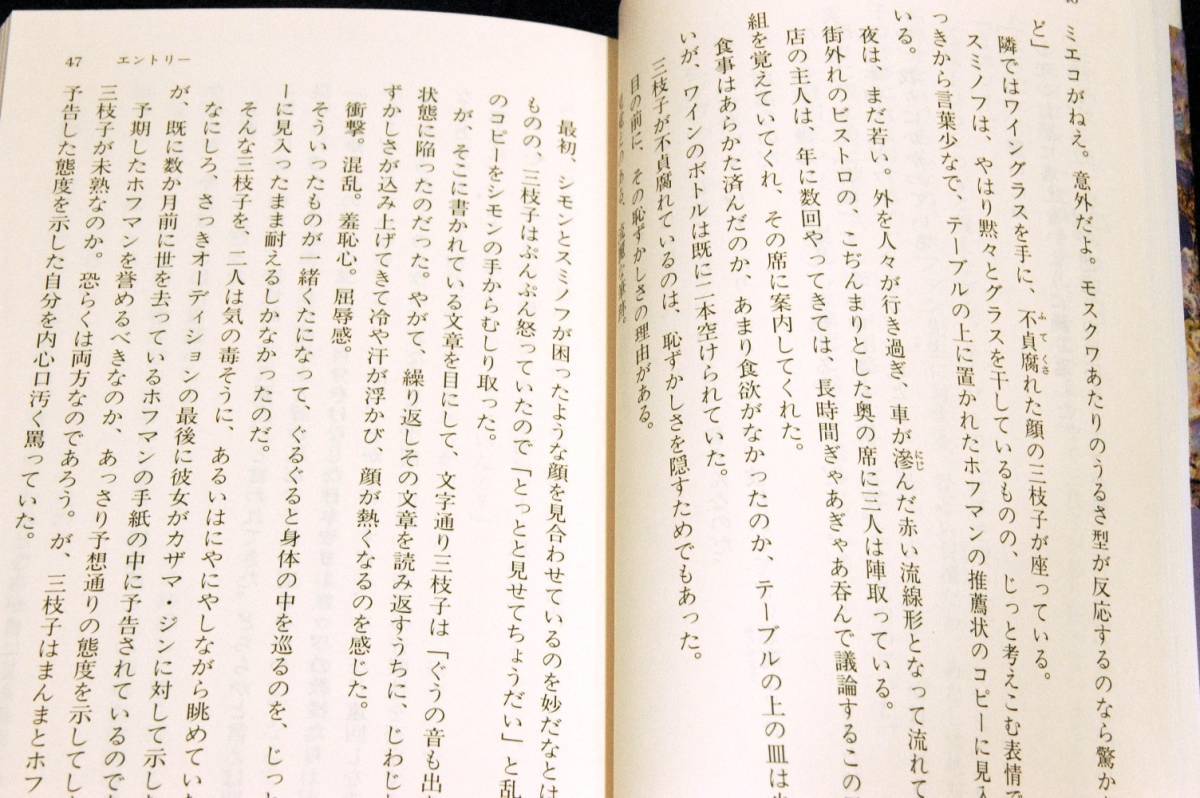 ミエコがねえ。意外だよ。モスクワあたりのうるさ型が反応するのなら驚か
ど」
隣ではワイングラスを手に、不貞腐れた顔の三枝子が座っている。
ふてくさ
スミノフは、やはり黙々とグラスを干しているものの、じっと考えこむ表情で
っきから言葉少なで、テーブルの上に置かれたホフマンの推薦状のコピーに見入
いる。
夜は、まだ若い。外を人々が行き過ぎ、車が滲んだ赤い流線形となって流れて
にじ
街外れのビストロの、こぢんまりとした奥の席に三人は陣取っている。
店の主人は、年に数回やってきては、長時間ぎゃあぎゃあ呑んで議論するこの
組を覚えていてくれ、その席に案内してくれた。
食事はあらかた済んだのか、あまり食欲がなかったのか、テーブルの上の皿は
いが、ワインのボトルは既に二本空けられていた。
三枝子が不貞腐れているのは、恥ずかしさを隠すためでもあった。
目の前に、その恥ずかしさの理由がある。
47 エントリー
最初、シモンとスミノフが困ったような顔を見合わせているのを妙だなとは
ものの、三枝子はぷんぷん怒っていたので「とっとと見せてちょうだい」と乱
のコピーをシモンの手からむしり取った。
が、そこに書かれている文章を目にして、文字通り三枝子は「ぐうの音も出
状態に陥ったのだった。やがて、繰り返しその文章を読み返すうちに、じわじ
ずかしさが込み上げてきて冷や汗が浮かび、顔が熱くなるのを感じた。
衝撃。混乱。羞恥心。屈辱感。
そういったものが一緒くたになって、ぐるぐると身体の中を巡るのを、じっ
ーに見入ったまま耐えるしかなかったのだ。
そんな三枝子を、二人は気の毒そうに、あるいはにやにやしながら眺めてい
なにしろ、さっきオーディションの最後に彼女がカザマ・ジンに対して示し
が、既に数か月前に世を去っているホフマンの手紙の中に予告されているので
予期したホフマンを誉めるべきなのか、あっさり予想通りの態度を示してし
三枝子が未熟なのか。恐らくは両方なのであろう。が、三枝子はまんまとホフ
予告した態度を示した自分を内心口汚く罵っていた。